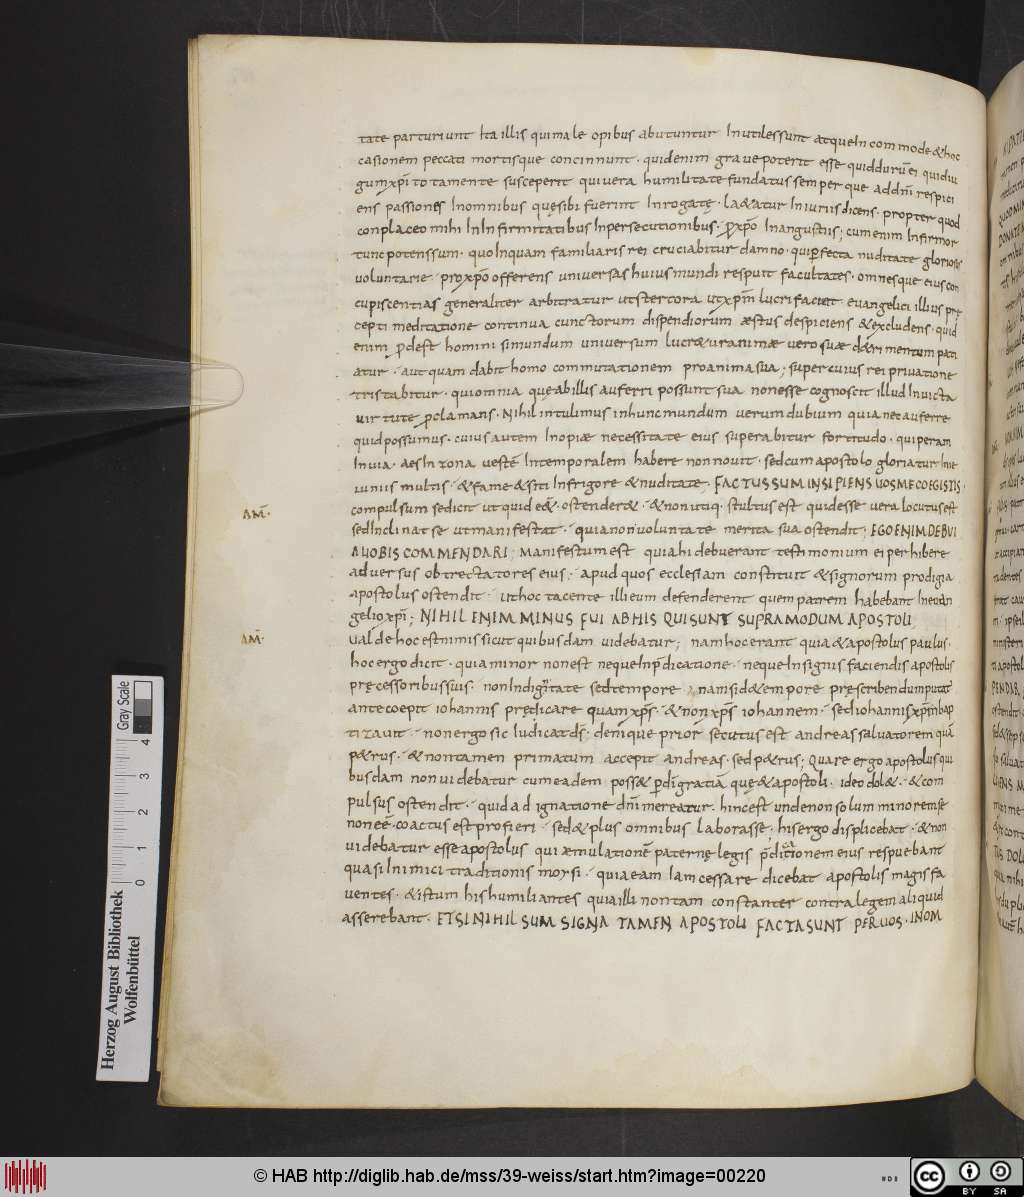 tate parturiunt Ita illis qui male opibus abutuntur Inutiles sunt atque In commode & hoc
casionem peccati mortisque concinnunt · quid enim graue poterit esse quid durū ei qui diu
gum xp̄i tota mente susceperit qui uera humilitate fundatus semper que ad dn̄i respici
ens passiones In omnibus quę sibi fuerint Inrogatę · Laetatur In iuriis dicens · propter quod
conplaceo mihi In Infirmitatibus In persecutionibus · ꝓ xp̄o In angustiis ; cum enim Infirmor
tunc potens sum · quo Inquam familiaris rei cruciabitur damno · qui perfecta nuditate gloriosus
uoluntarie · pro xp̄o offerens uniuersas huius mundi respuit facultates · omnesque eius con
cupiscentias generaliter arbitratur ut stercora ut xp̄m lucri faciat · euangelici illius prę
cepti meditatione continua cunctorum dispendiorum æstus despiciens & excludens · quid
enim ꝓdest homini si mundum uniuersum lucr&ur animæ uero suæ d&rimentum pati
atur · aut quam dabit homo commutationem pro anima sua ; super cuius rei priuatione
tristabitur · qui omnia que ab illis auferri possunt sua non esse cognoscit illud Inuicta
uirtute ꝓclamans · Nihil intulimus in hunc mundum uerum dubium quia nec auferre
quid possumus · cuius autem Inopiæ necessitate eius superabitur fortitudo · qui peram
In uia · aes In zona uestē Intemporalem habere non nouit · sed cum apostolo gloriatur In ie
iuniis multis · & fame & siti In frigore & nuditate · FACTUS SUM INSIPIENS UOS ME COEGISTIS ·
AM̄ · compulsum se dicit ut quid eā · ostender& · & non utiq · stultus est quid esse uera locutus est
sed Inclinat se ut manifestat · quia non uoluntate merita sua ostendit · EGO ENIM DEBUI
A UOBIS COMMENDARI ; Manifestum est quia hi debuerant testimonium ei perhibere
aduersus obtrectatores eius · apud quos ecclesiam constituit & signorum prodigia
apostolus ostendit · ut hoc tacente illi eum defenderent quem patrem habebant In euan
gelio xp̄i ; NIHIL ENIM MINUS FUI AB HIS QUI SUNT SUPRA MODUM APOSTOLI ;
AM̄ · Ualde hoc est nimis sicut quibusdam uidebatur ; nam hoc erant quia & apostolus paulus ·
hoc ergo dicit · quia minor non est neque In p̄dicatione · neque In signis faciendis apostolus
pręcessoribus suis · non In dignitate sed tempore ; nam si de tempore pręscribendum putat
ante coepit iohannis prędicare quam xp̄s · & non xp̄s iohannem · sed iohannis xp̄m bap
tizauit · non ergo sic Iudicat d̄s ; denique prior secutus est andreas saluatorem quā
p&rus · & non tamen primatum accepit andreas · sed p&rus ; Quare ergo apostolus qui
busdam non uidebatur cum eadem poss& ꝑ dī gratiā quę & apostoli · ideo dol& · & com
pulsus ostendit · quid ad ignatione dn̄i mereatur · hinc est unde non solum minorem se
non eē · coactus est profieri · sed & plus omnibus laborasse ; his ergo displicebat · & non
uidebatur esse apostolus qui æmulationē paternę legis p̄dicationem eius respuebant
quasi Inimici traditionis moysi · quia eam Iam cessare dicebat apostolis magis fa
uentes · & istum his humiliantes quia illi non tam constanter contra legem aliquid
asserebant · ETSI NIHIL SUM SIGNA TAMEN APOSTOLI FACTA SUNT PER UOS · IN OM
Herzog August Bibliothek
Wolfenbüttel
Gray Scale
0 1 2 3 4
© HAB http://diglib.hab.de/mss/39-weiss/start.htm?image=00220
cc BY SA